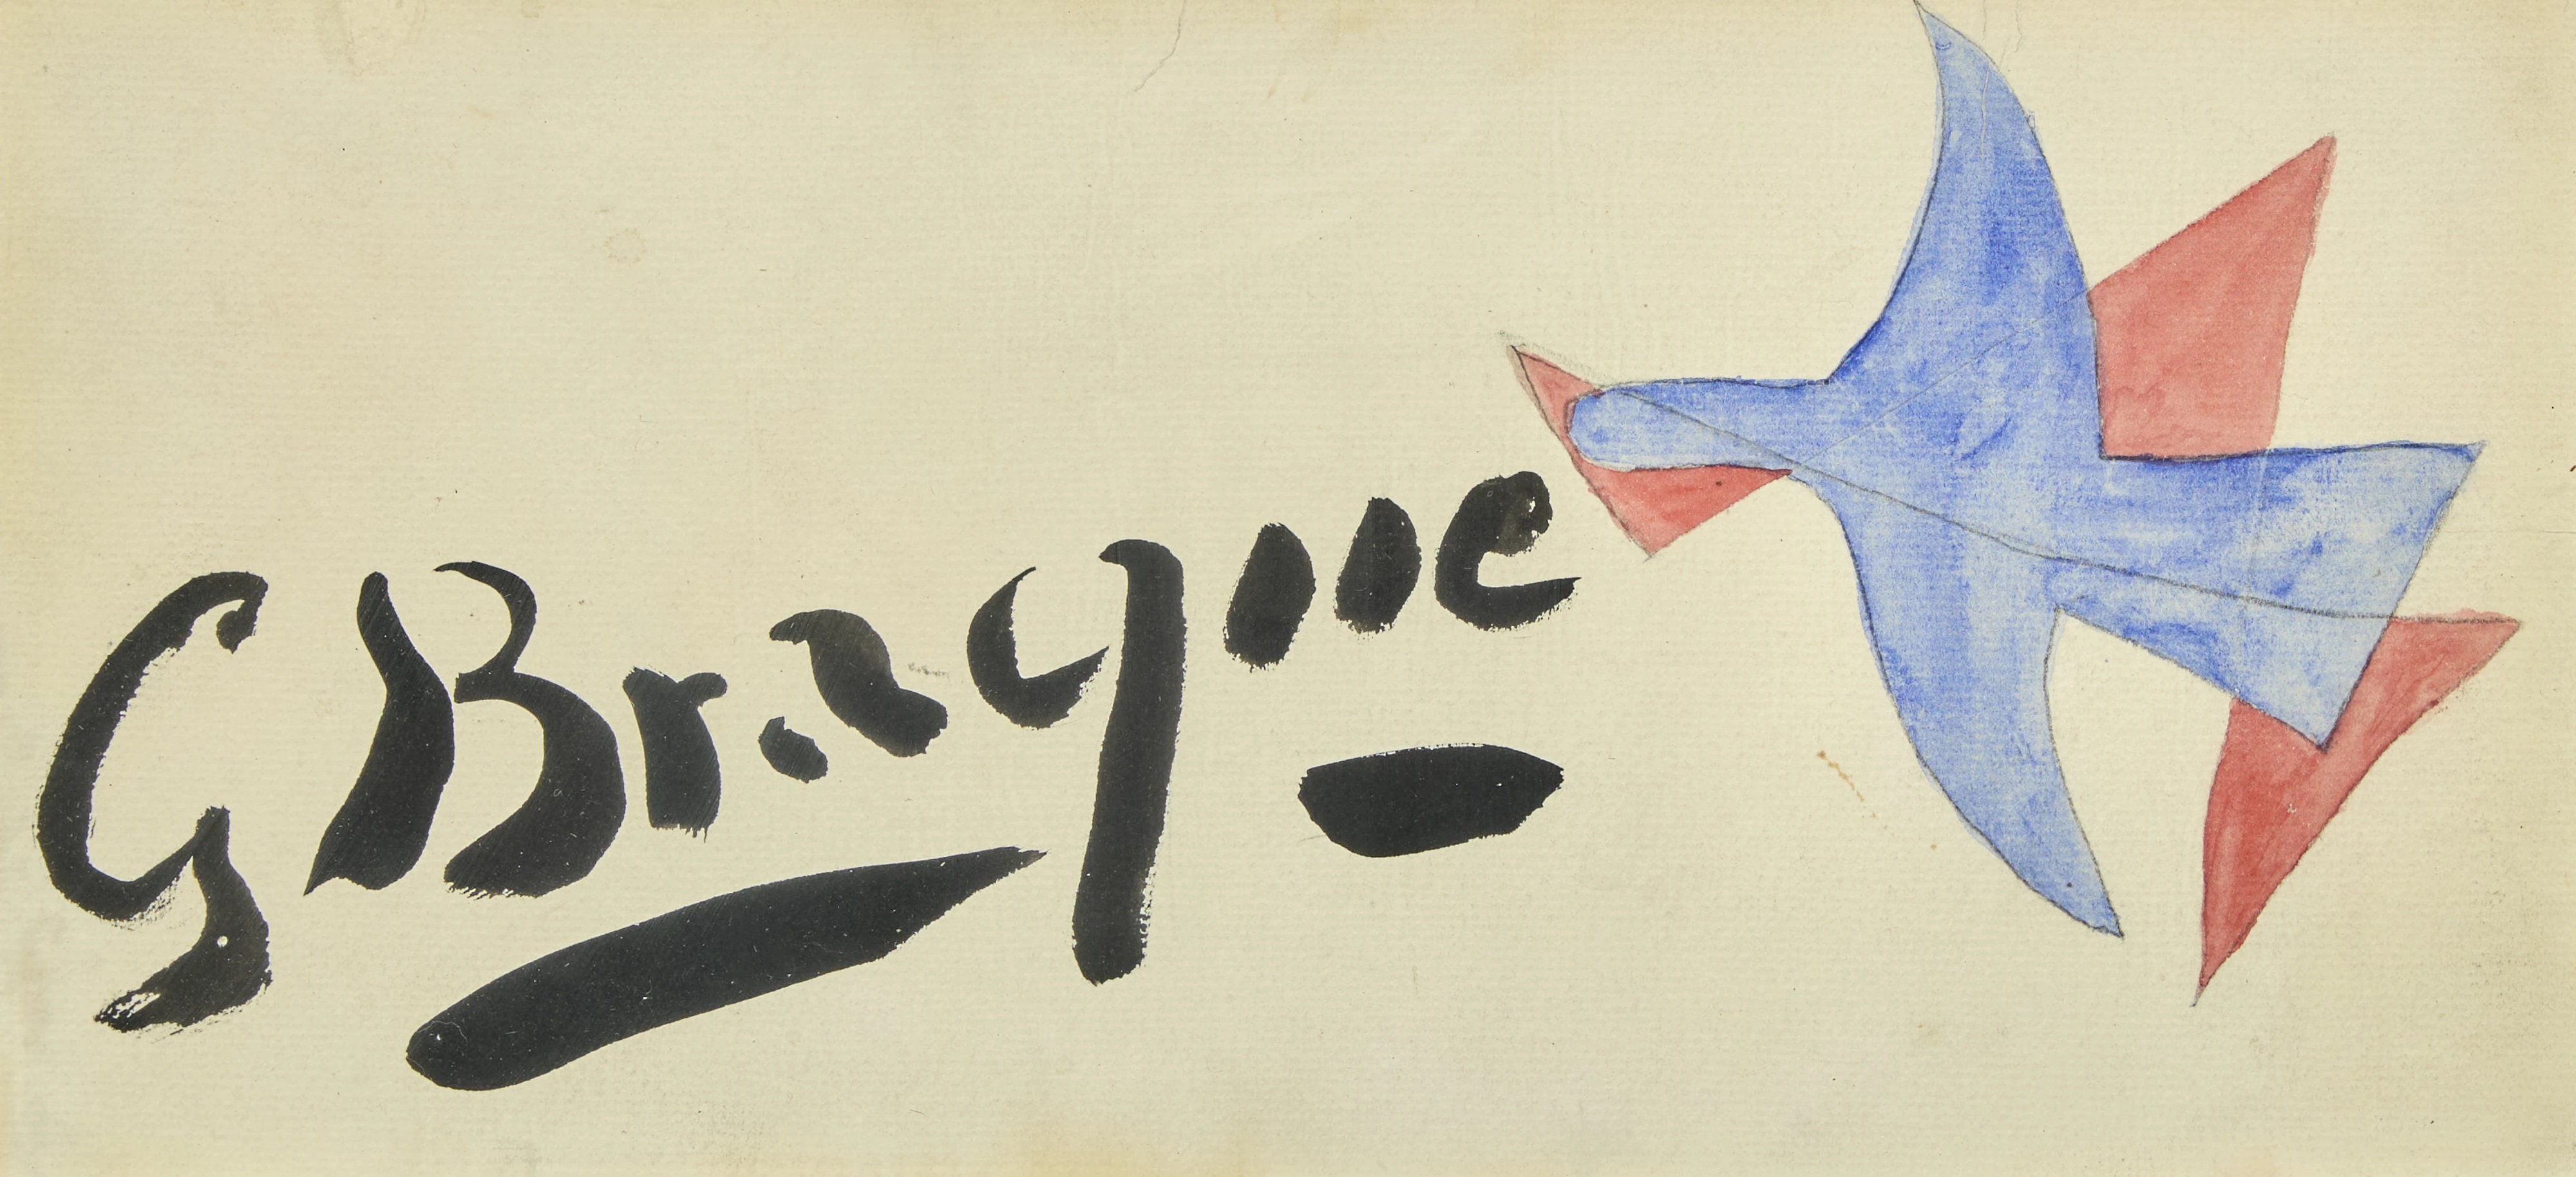 G Braque